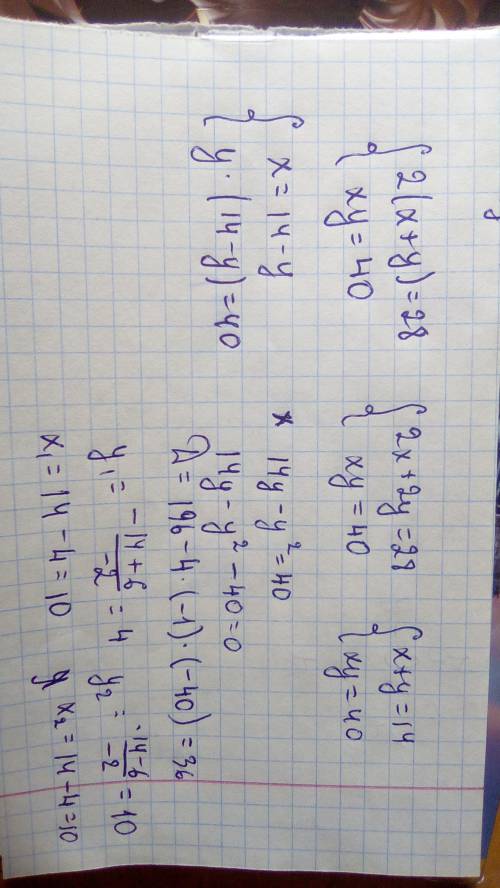 { 2(x+y)=28 { 2x+2y=28 { x+y=14
{ xy=40 { xy=40 { xy=40
{ x=14-y * 14y-y²=40
{ y·(14-y)=40 14y-y²-40=0
D=196-4·(-1)·(-40)=36
y₁=(-14+6)/(-2)=4 y₂=(-14-6)/(-2)=10
x₁=14-4=10 x₂=14-4=10